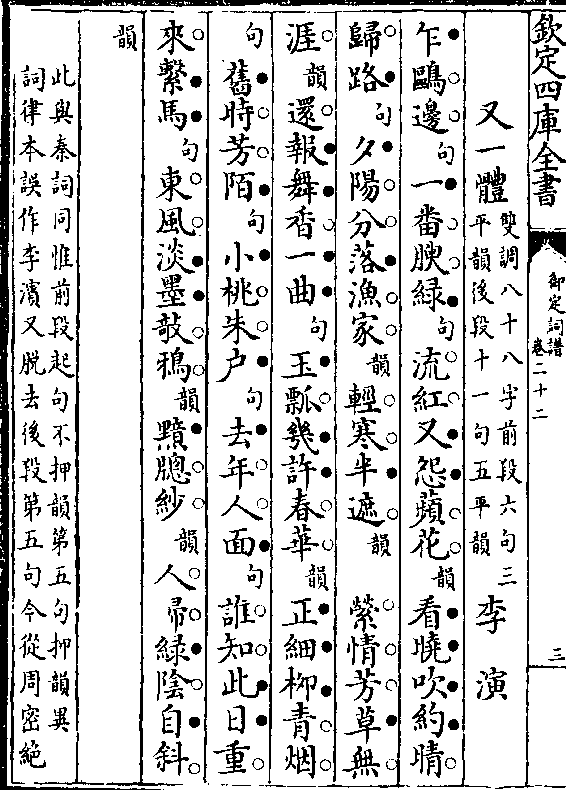 欽定四庫全書
御定詞譜 卷二十二
三
又一體 雙調八十八字前段六句三平韻後段十一句五平韻 李演
乍鷗邊句一番腴綠句流紅又怨蘋花韻看曉吹約晴
歸路句夕陽分落漁家韻輕寒半遮韻 縈情芳草無
涯韻還報舞香一曲句玉瓢幾許春華韻正細柳青烟
句舊時芳陌句小桃朱户句去年人面句誰知此日重
來繫馬句東風淡墨攲鴉韻黯牕紗韻人帚綠陰自斜
韻
此與秦詞同惟前段起句不押韻第五句押韻異
詞律本誤作李濱又脱去後段第五句今從周密絕